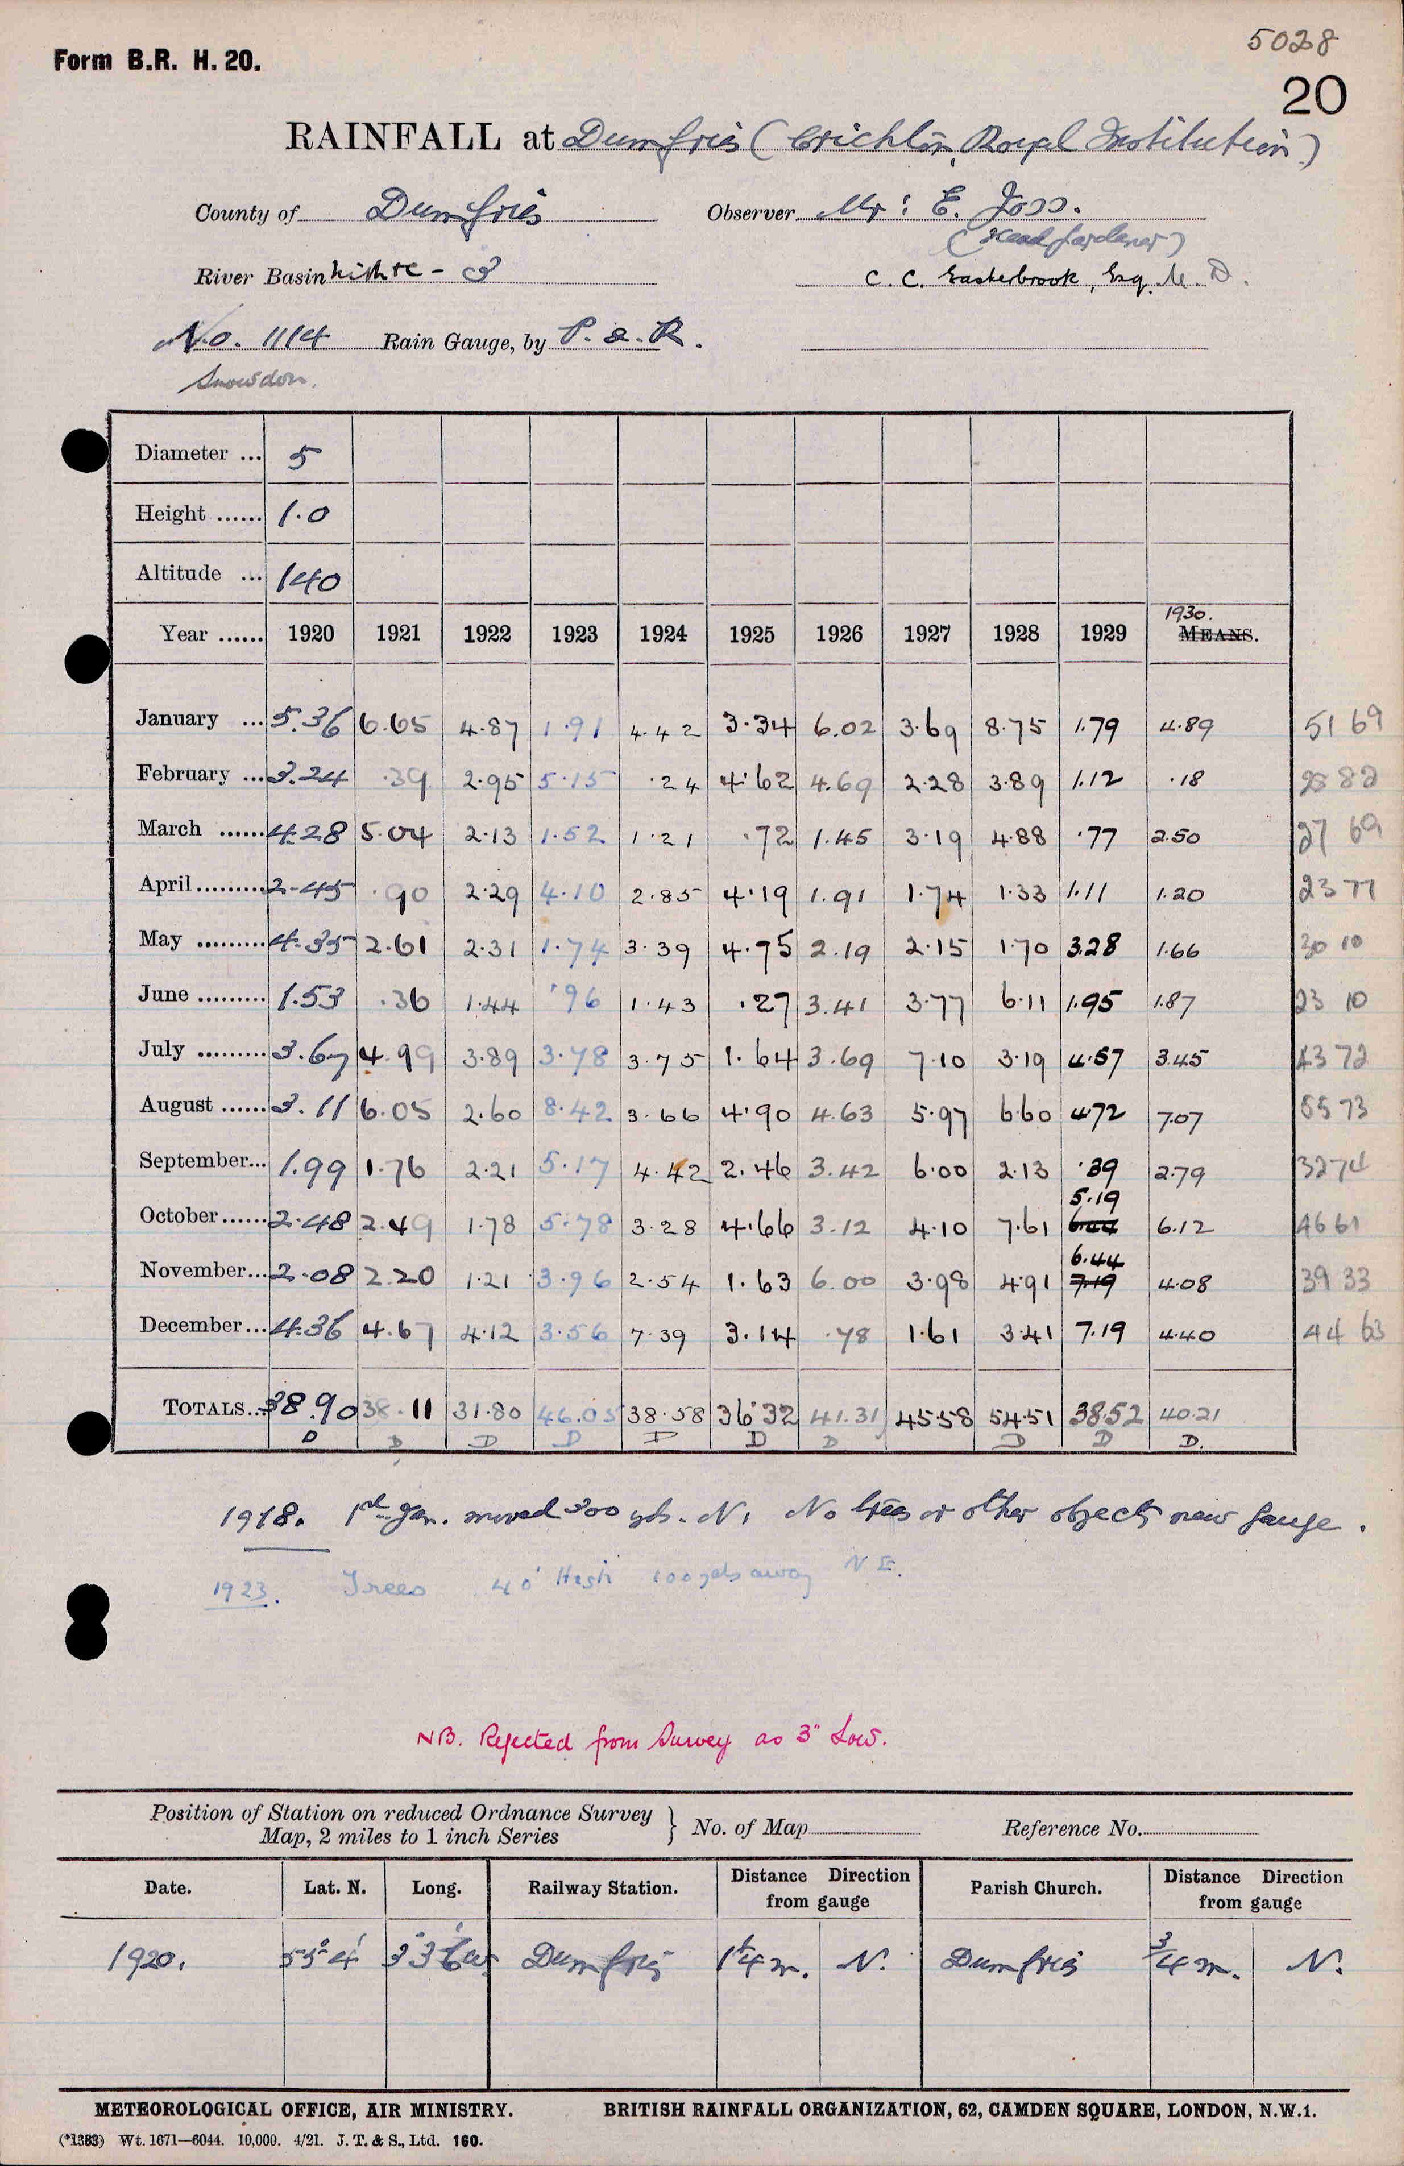 5028
Form B.R. H. 20.
20
RAINFALL at Dumfries (Crichton Royal Institution)
County of Dumfries Observer Mr: E. Joss.
(Head Gardener)
River Basin Nithte - 3 C. C. Easterbrook, Esq. M. D.
No. 1114 Rain Gauge, by P. & R.
Snowdon.
Diameter ... 5
Height ...... 1.0
Altitude ... 140
1930.
Year ...... 1920 1921 1922 1923 1924 1925 1926 1927 1928 1929 MEANS.
January ... 5.36 6.65 4.87 1.91 4.42 3.34 6.02 3.69 8.75 1.79 4.89 51 69
February ... 3.24 .39 2.95 5.15 .24 4.62 4.69 2.28 3.89 1.12 .18 28 82
March ...... 4.28 5.04 2.13 1.52 1.21 .72 1.45 3.19 4.88 .77 2.50 27 69
April ......... 2.45 .90 2.29 4.10 2.85 4.19 1.91 1.74 1.33 1.11 1.20 23 77
May ......... 4.35 2.61 2.31 1.74 3.39 4.75 2.19 2.15 1.70 3.28 1.66 30 10
June ......... 1.53 .36 1.44 .96 1.43 .27 3.41 3.77 6.11 1.95 1.87 23 10
July ......... 3.67 4.99 3.89 3.78 3.75 1.64 3.69 7.10 3.19 4.57 3.45 43 72
August ...... 3.11 6.05 2.60 8.42 3.66 4.90 4.63 5.97 6.60 4.72 7.07 55 73
September... 1.99 1.76 2.21 5.17 4.42 2.46 3.42 6.00 2.13 .39 2.79 32 74
5.19
October ...... 2.48 2.49 1.78 5.78 3.28 4.66 3.12 4.10 7.61 6.44 6.12 46 61
6.44
November... 2.08 2.20 1.21 3.96 2.54 1.63 6.00 3.98 4.91 7.19 4.08 39 33
December... 4.36 4.67 4.12 3.56 7.39 3.14 .78 1.61 3.41 7.19 4.40 44 63
TOTALS... 38.90 38.11 31.80 46.05 38.58 36.32 41.31 45.58 54.51 38.52 40.21
D D D D D D D D D D
1918. 1st Jan. moved 200 yds. N. No trees or other objects near gauge.
1923. Trees 40' High 100 yds away N E.
NB. Rejected from Survey as 3" Low.
Position of Station on reduced Ordnance Survey Map, 2 miles to 1 inch Series } No. of Map Reference No.
Date. Lat. N. Long. Railway Station. Distance Direction from gauge Parish Church. Distance Direction from gauge
1920. 55° 4' 3° 36' W Dumfries 1 1/4 m. N. Dumfries 3/4 m. N.
METEOROLOGICAL OFFICE, AIR MINISTRY. BRITISH RAINFALL ORGANIZATION, 62, CAMDEN SQUARE, LONDON, N.W.1.
(*1383) Wt. 1671—6044. 10,000. 4/21. J. T. & S., Ltd. 160.